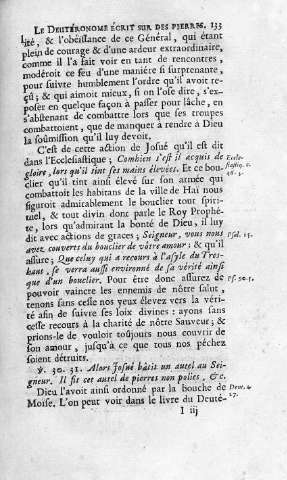 LE DEUTÉRONOME ÉCRIT SUR DES PIERRES. 133
lité, & l'obéïssance de ce Général, qui étant
plein de courage & d'une ardeur extraordinaire,
comme il l'a fait voir en tant de rencontres,
modéroit ce feu d'une maniére si surprenante,
pour suivre humblement l'ordre qu'il avoit re-
çû; & qui aimoit mieux, si on l'ose dire, s'ex-
poser en quelque façon à passer pour lâche, en
s'abstenant de combattre lors que ses troupes
combattoient, que de manquer à rendre à Dieu
la soûmission qu'il luy devoit.
C'est de cette action de Josué qu'il est dit
dans l'Ecclesiastique; Combien s'est il acquis de Eccle-
gloire, lors qu'il tint ses mains élevées. Et ce bou- siastic. c.
clier qu'il tint ainsi élevé sur son armée qui 46. 3.
combattoit les habitans de la ville de Haï nous
figuroit admirablement le bouclier tout spiri-
tuel, & tout divin donc parle le Roy Prophé-
te, lors qu'admirant la bonté de Dieu, il luy
dit avec actions de graces; Seigneur, vous nous Psal. 5.
avez couverts du bouclier de vôtre amour: & qu'il
assure; Que celuy qui a recours à l'asyle du Tres-
haut, se verra aussi environné de sa vérité ainsi
que d'un bouclier. Pour être donc assurez de Ps. 90. 5.
pouvoir vaincre les ennemis de nôtre salut,
tenons sans cesse nos yeux élevez vers la véri-
té afin de suivre ses loix divines: ayons sans
cesse recours à la charité de nôtre Sauveur; &
prions-le de vouloir toûjours nous couvrir de
son amour, jusqu'à ce que tous nos péchez
soient détruits.
℣. 30. 31. Alors Josué bâtit un autel au Sei-
gneur. Il fit cet autel de pierres non polies, &c.
Dieu l'avoit ainsi ordonné par la bouche de Deut. c.
Moïse. L'on peut voir dans le livre du Deuté- 27.
I iij